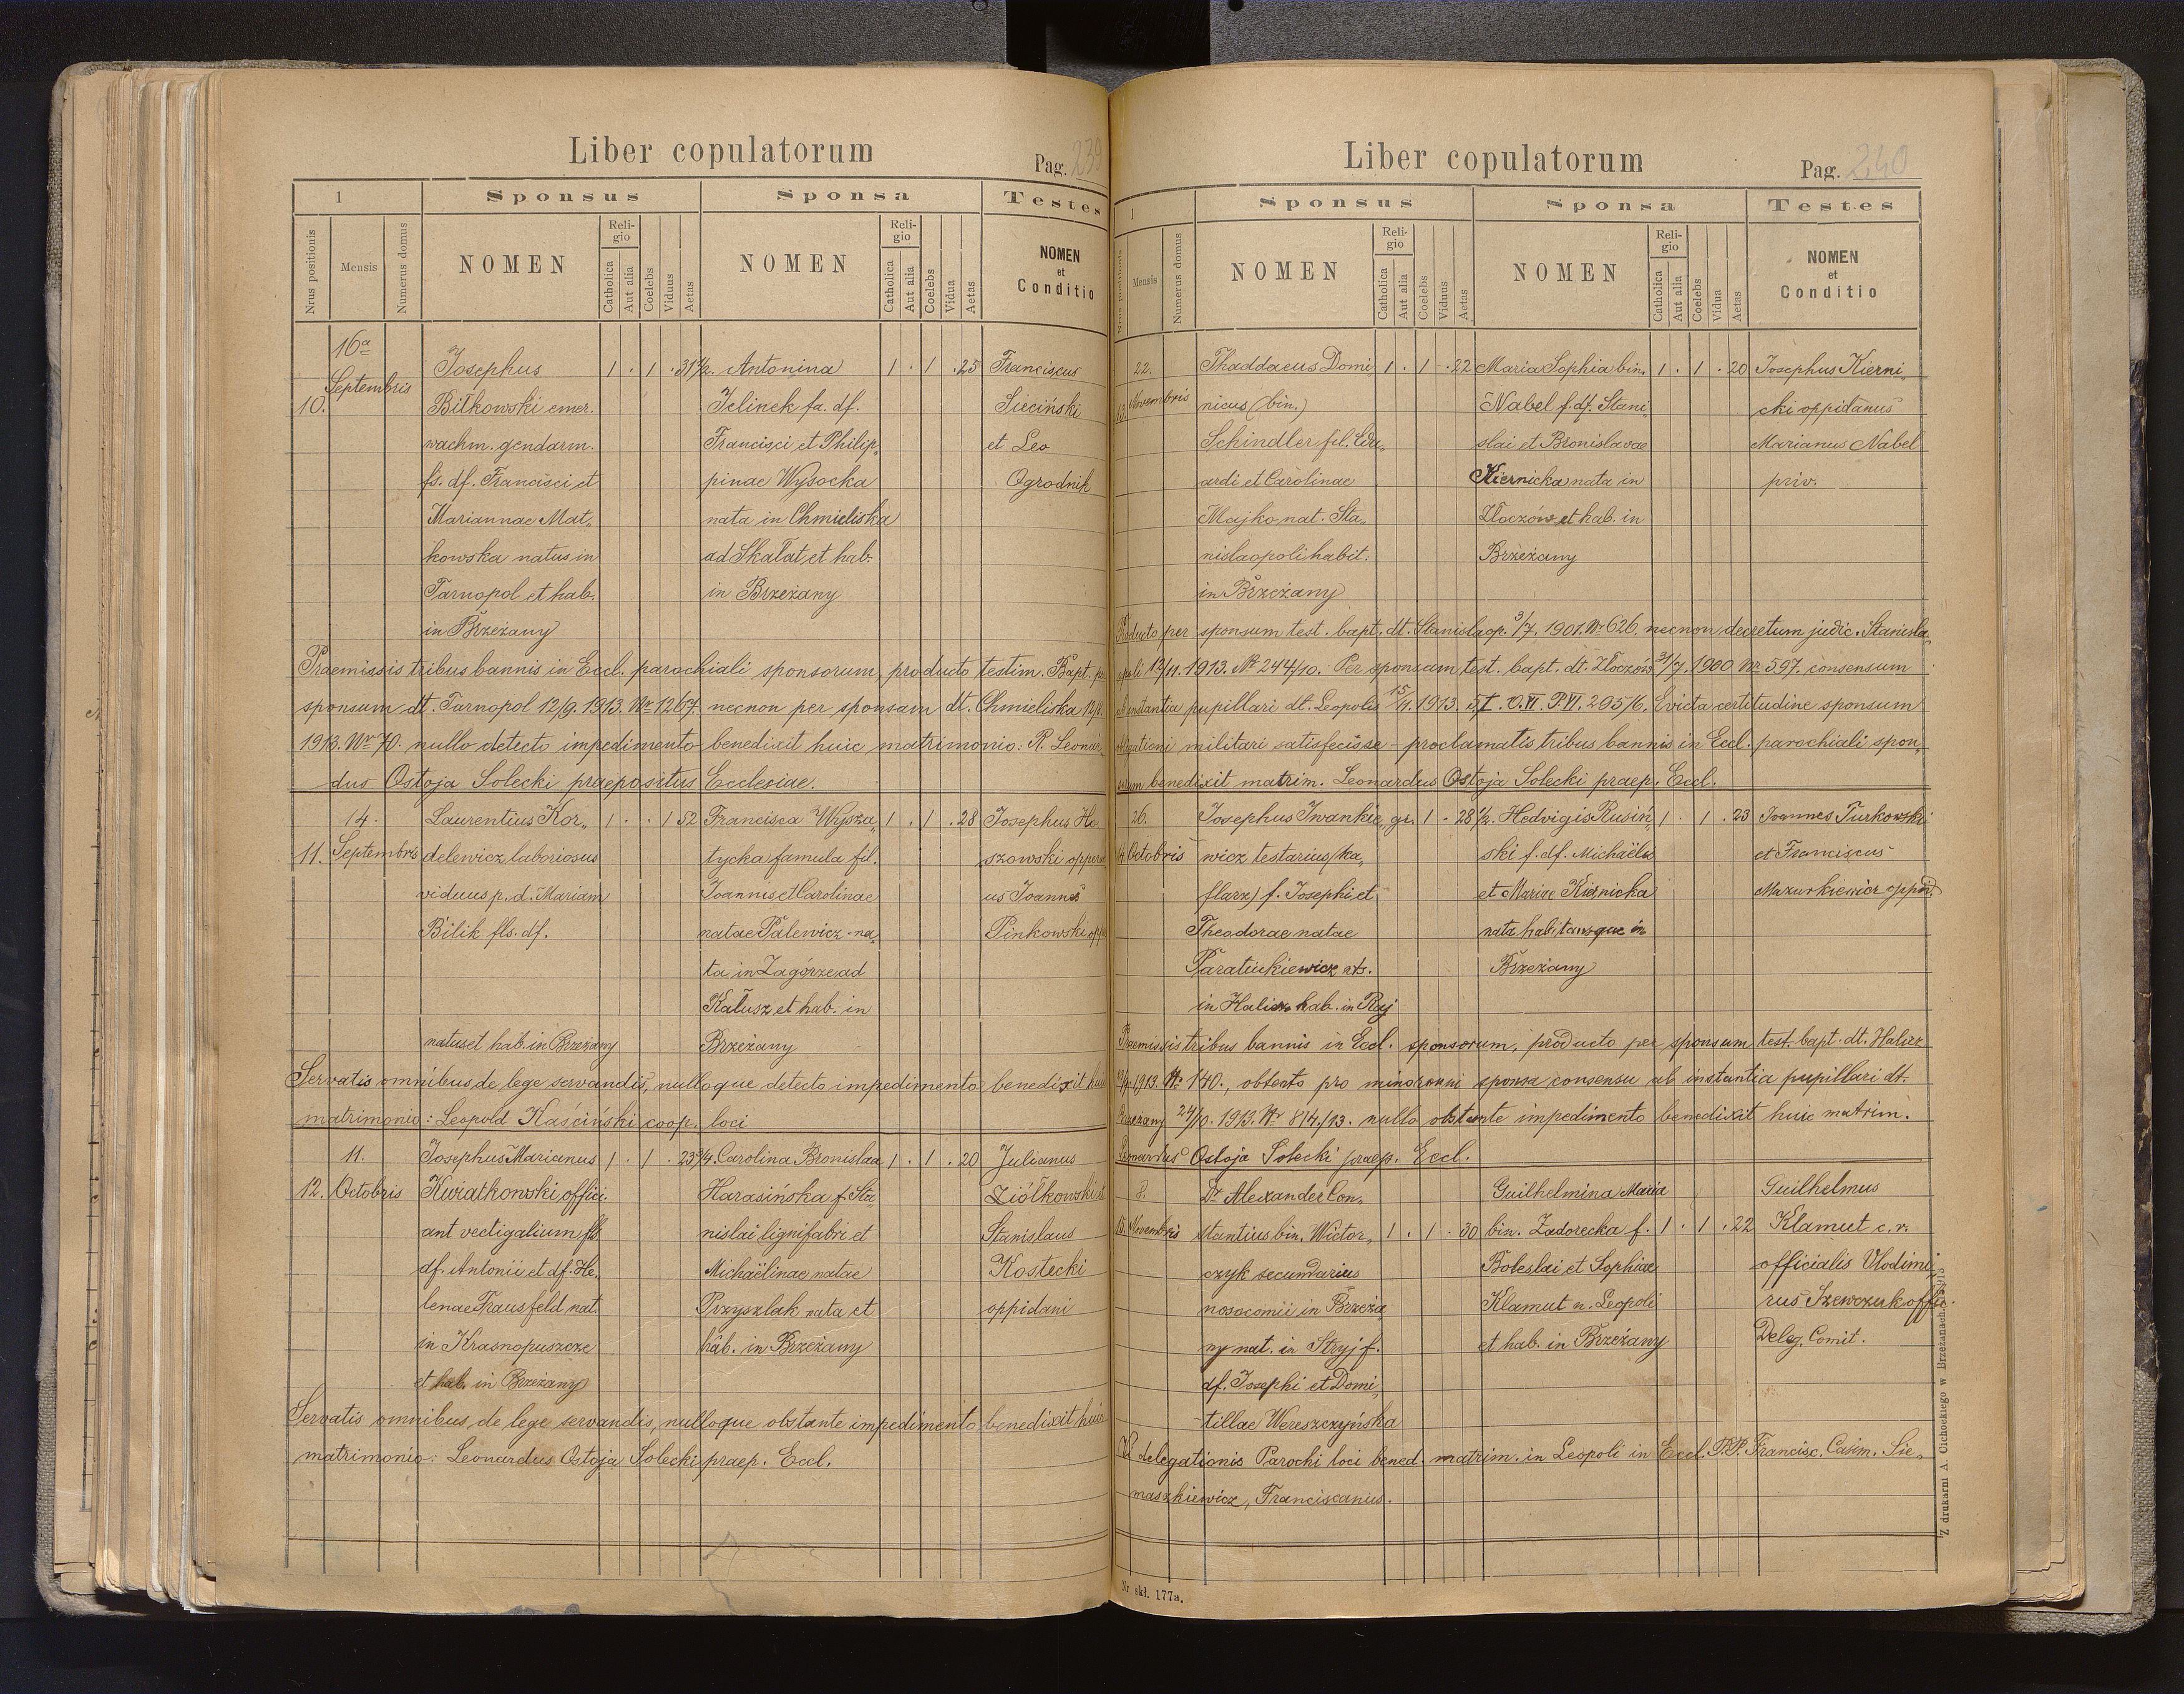 Liber copulatorum
Pag. 239
1
Sponsus
Sponsa
Testes
Nrus positionis
Mensis
Numerus domus
NOMEN
Religio
Catholica
Aut alia
Coelebs
Viduus
Aetas
NOMEN
Religio
Catholica
Aut alia
Coelebs
Vidua
Aetas
NOMEN
et
Conditio
16a
Septembris
10.
Josephus 1 . 1 . 31½ Antonina 1 . 1 . 25 Franciscus
Bitkowski emer. Jelinek fa. df. Sieciński
wachm. gendarm. Francisci et Philip„ et Leo
fs. df. Francisci et pinae Wysocka Ogrodnik
Mariannae Mat„ nata in Chmieliska
kowska natus in ad Skałat et hab.
Tarnopol et hab. in Brzeżany
in Brzeżany
Praemissis tribus bannis in Eccl. parochiali sponsorum, producto testim. Bapt.
sponsum dt. Tarnopol 12/9. 1913. Nr 1267. necnon per sponsam dt. Chmieliska
1913. Nr 70. nullo detecto impedimento benedixit huic matrimonio: R. Leonar
dus Ostoja Solecki praepositus Ecclesiae.
14. Laurentius Kor„ 1 . . 1 52 Francisca Wysza„ 1 . 1 . 28 Josephus Ho„
11. Septembris delewicz laboriosus tycka famula fil. szowski
viduus p. d. Mariam Joannis et Carolinae us Joannes
Bilik fls. df. natae Palewicz na„ Pinkowski
ta in Zagórze ad
Kałusz et hab. in
natus et hab. in Brzeżany Brzeżany
Servatis omnibus de lege servandis, nulloque detecto impedimento benedixit huic
matrimonio: Leopold Kaściński coop. loci
11. Josephus Marianus 1 . 1 . 23¾ Carolina Bronislaa 1 . 1 . 20 Julianus
12. Octobris Kwiatkowski offici„ Harasińska f. Sta„ Ziółkowski
ant vectigalium fls. nislai lignifabri et Stanislaus
df. Antonii et df. He„ Michaëlinae natae Kostecki
lenae Trausfeld nat. Przyszlak nata et oppidani
in Krasnopuszcze hab. in Brzeżany
et hab. in Brzeżany
Servatis omnibus, de lege servandis, nulloque obstante impedimento benedixit huic
matrimonio: Leonardus Ostoja Solecki praep. Eccl.
Liber copulatorum
Pag. 240
1
Sponsus
Sponsa
Testes
Nrus positionis
Mensis
Numerus domus
NOMEN
Religio
Catholica
Aut alia
Coelebs
Viduus
Aetas
NOMEN
Religio
Catholica
Aut alia
Coelebs
Vidua
Aetas
NOMEN
et
Conditio
22. Thaddaeus Domi„ 1 . 1 . 22 Maria Sophia bin. 1 . 1 . 20 Josephus Kierni„
13. Novembris nicus (bin.) Nabel f. df. Stani„ cki oppidanus
Schindler fil. Edu„ slai et Bronislavae Marianus Nabel
ardi et Carolinae Kiernicka nata in priv.
Majko nat. Sta„ Złoczów et hab. in
nislaopoli habit. Brzeżany
in Brzeżany
Producto per sponsum test. bapt. dt. Stanislaop. 3/7. 1901. Nr 626. necnon decretum judic. Stanisla„
opoli 13/11. 1913. Nr 244/10. Per sponsam test. bapt. dt. Złoczów 31/7. 1900 Nr 597. consensum
instantia pupillari dt. Leopolis 15/11. 1913. I. O.VI. P.VI. 295/6. Evicta certitudine sponsum
obligationi militari satisfecisse - proclamatis tribus bannis in Eccl. parochiali spon„
sorum benedixit matrim. Leonardus Ostoja Solecki praep. Eccl.
26. Josephus Iwankie„ gr. 1 . 28½ Hedvigis Rusiń„ 1 . 1 . 23 Joannes Turkowski
14. Octobris wicz testarius (ka„ ski f. df. Michaëlis et Franciscus
flarz) f. Josephi et et Mariae Kiernicka Mazurkiewicz oppid.
Theodorae natae nata habitansque in
Paratiukiewicz nts. Brzeżany
in Halicz hab. in Raj
Praemissis tribus bannis in Eccl. sponsorum, producto per sponsum test. bapt. dt. Halicz
1913. Nr 140., obtento pro minorenni sponsa consensu ab instantia pupillari dt.
Brzeżany 24/10. 1913. Nr 814/13. nullo obstante impedimento benedixit huic matrim.
Leonardus Ostoja Solecki praep. Eccl.
8. Dr Alexander Con„ Guilhelmina Maria Guilhelmus
15. Novembris stantius bin. Wictor„ 1 . 1 . 30 bin. Zadorecka f. 1 . 1 . 22 Klamut c. r.
czyk secundarius Boleslai et Sophiae officialis Vlodimi„
nosocomii in Brzeża„ Klamut n. Leopoli rus Szewczuk offic.
ny nat. in Stryj f. et hab. in Brzeżany Deleg. Comit.
df. Josephi et Domi„
tillae Wereszczyńska
delegationis Parochi loci bened. matrim. in Leopoli in Eccl. P.P. Francisc. Casim. Sie„
maszkiewicz, Franciscanus.
Nr skł. 177a.
Z drukarni A. Cichockiego w Brzeżanach 1913